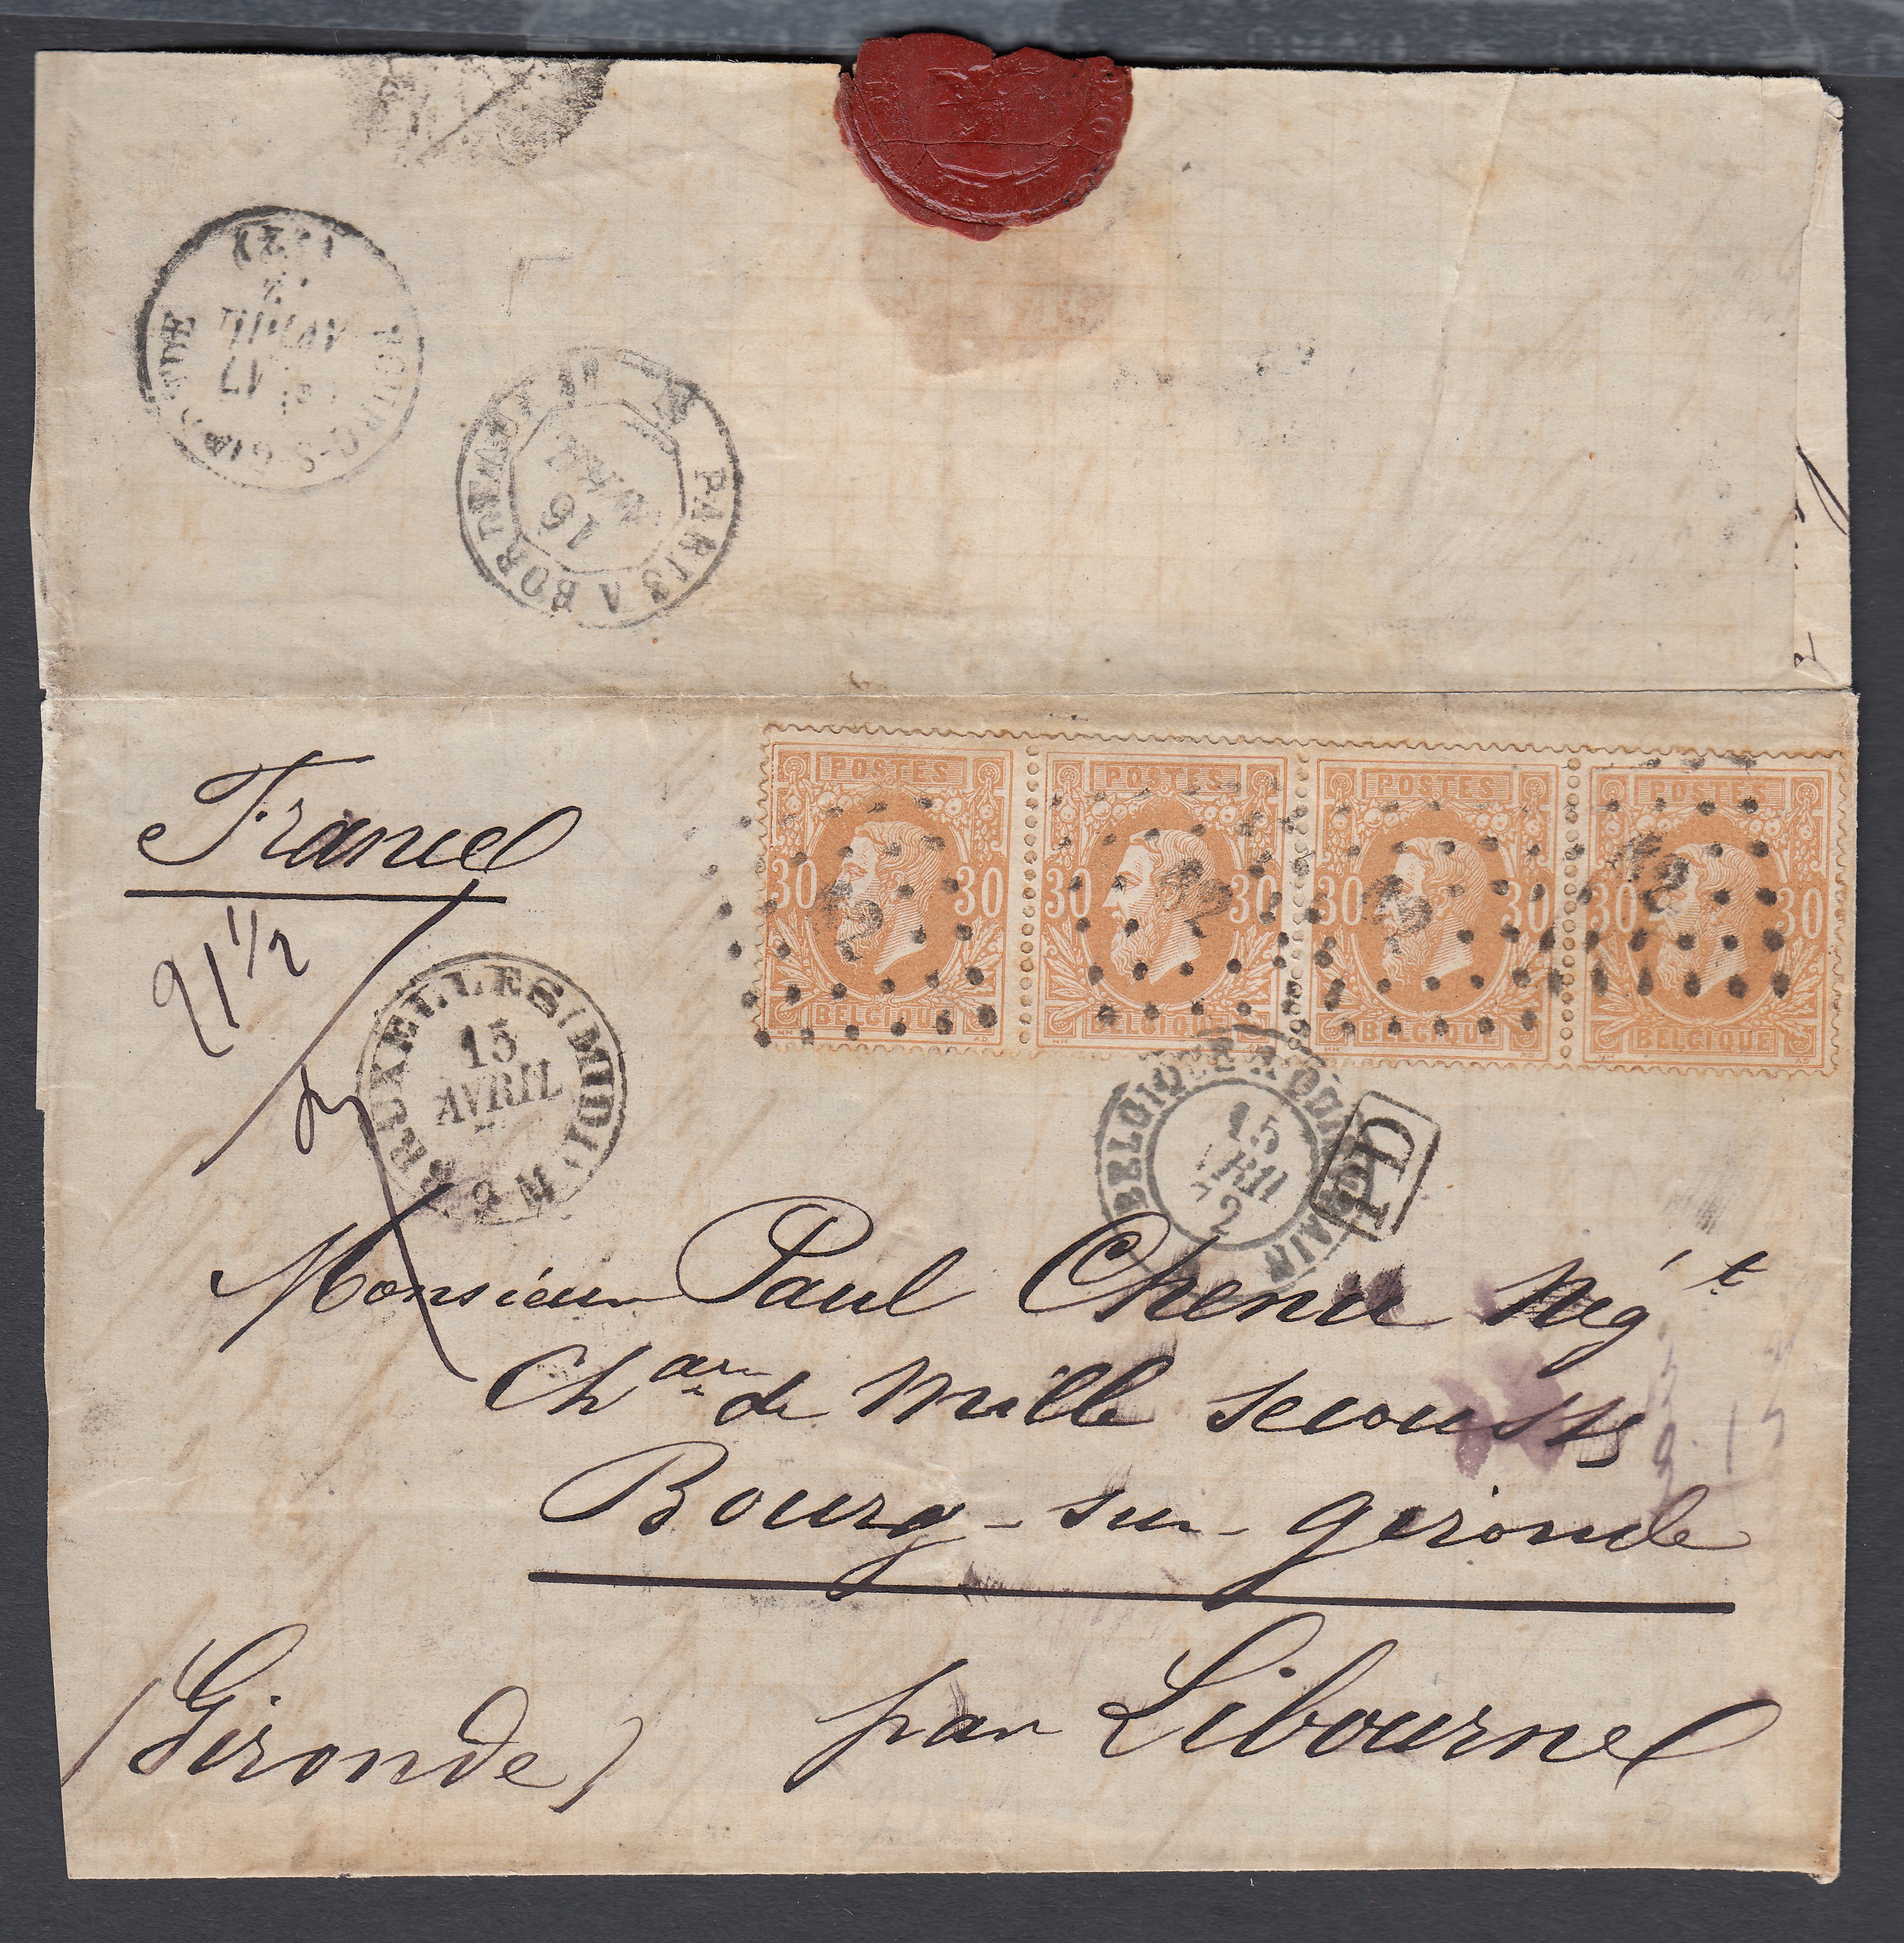 PARIS A BORDEAUX
16
AVRIL
17
POSTES POSTES POSTES POSTES
30 30 30 30 30 30 30 30
12 12 12 12
BELGIQUE BELGIQUE BELGIQUE BELGIQUE
France
21 1/2
BRUXELLES (MIDI)
15
AVRIL
6 M
BELGIQUE A QUIEVRAIN
15
AVRIL
72
PD
Monsieur Paul Chenu Nég.t
Ch.au de Mille Secousses
Bourg-sur-Gironde
par Libourne
(Gironde)